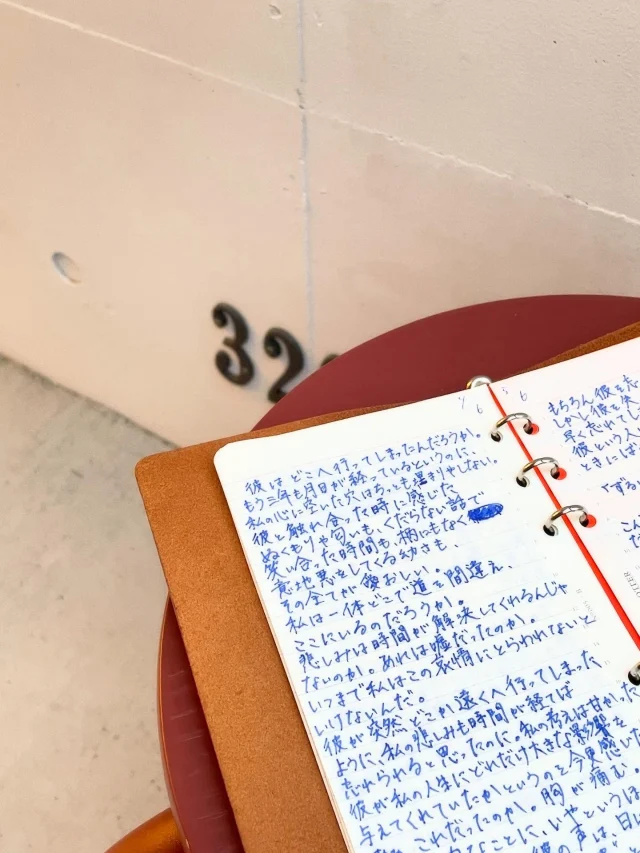 32
6
6
彼はどこへ行ってしまったんだろうか。
もう三年も月日が経っているというのに、
私の心に空いた穴はちっとも埋まりやしない。
彼と触れ合った時に感じた
ぬくもりや匂いも、くだらない話で
笑い合った時間も、柄にもなく
意地悪をしてくる幼さも、
その全てが愛おしい。
私は一体どこで道を間違え、
ここにいるのだろうか。
悲しみは時間が解決してくれるんじゃ
ないのか。あれは嘘だったのか。
いつまで私はこの哀情にとらわれないと
いけないんだ。
彼が突然どこか遠くへ行ってしまった
ように、私の悲しみも時間が経てば
忘れられると思ったのに。私の考えは甘かった
彼が私の人生にどれだけ大きな影響を
与えてくれていたかというのを今更感じた
これだったのか。胸が痛む
なことに、いやというほ
彼の声は、日
もちろん彼を忘
しかし彼を失
早く忘れ
彼という人
ときには
「ずる
こ